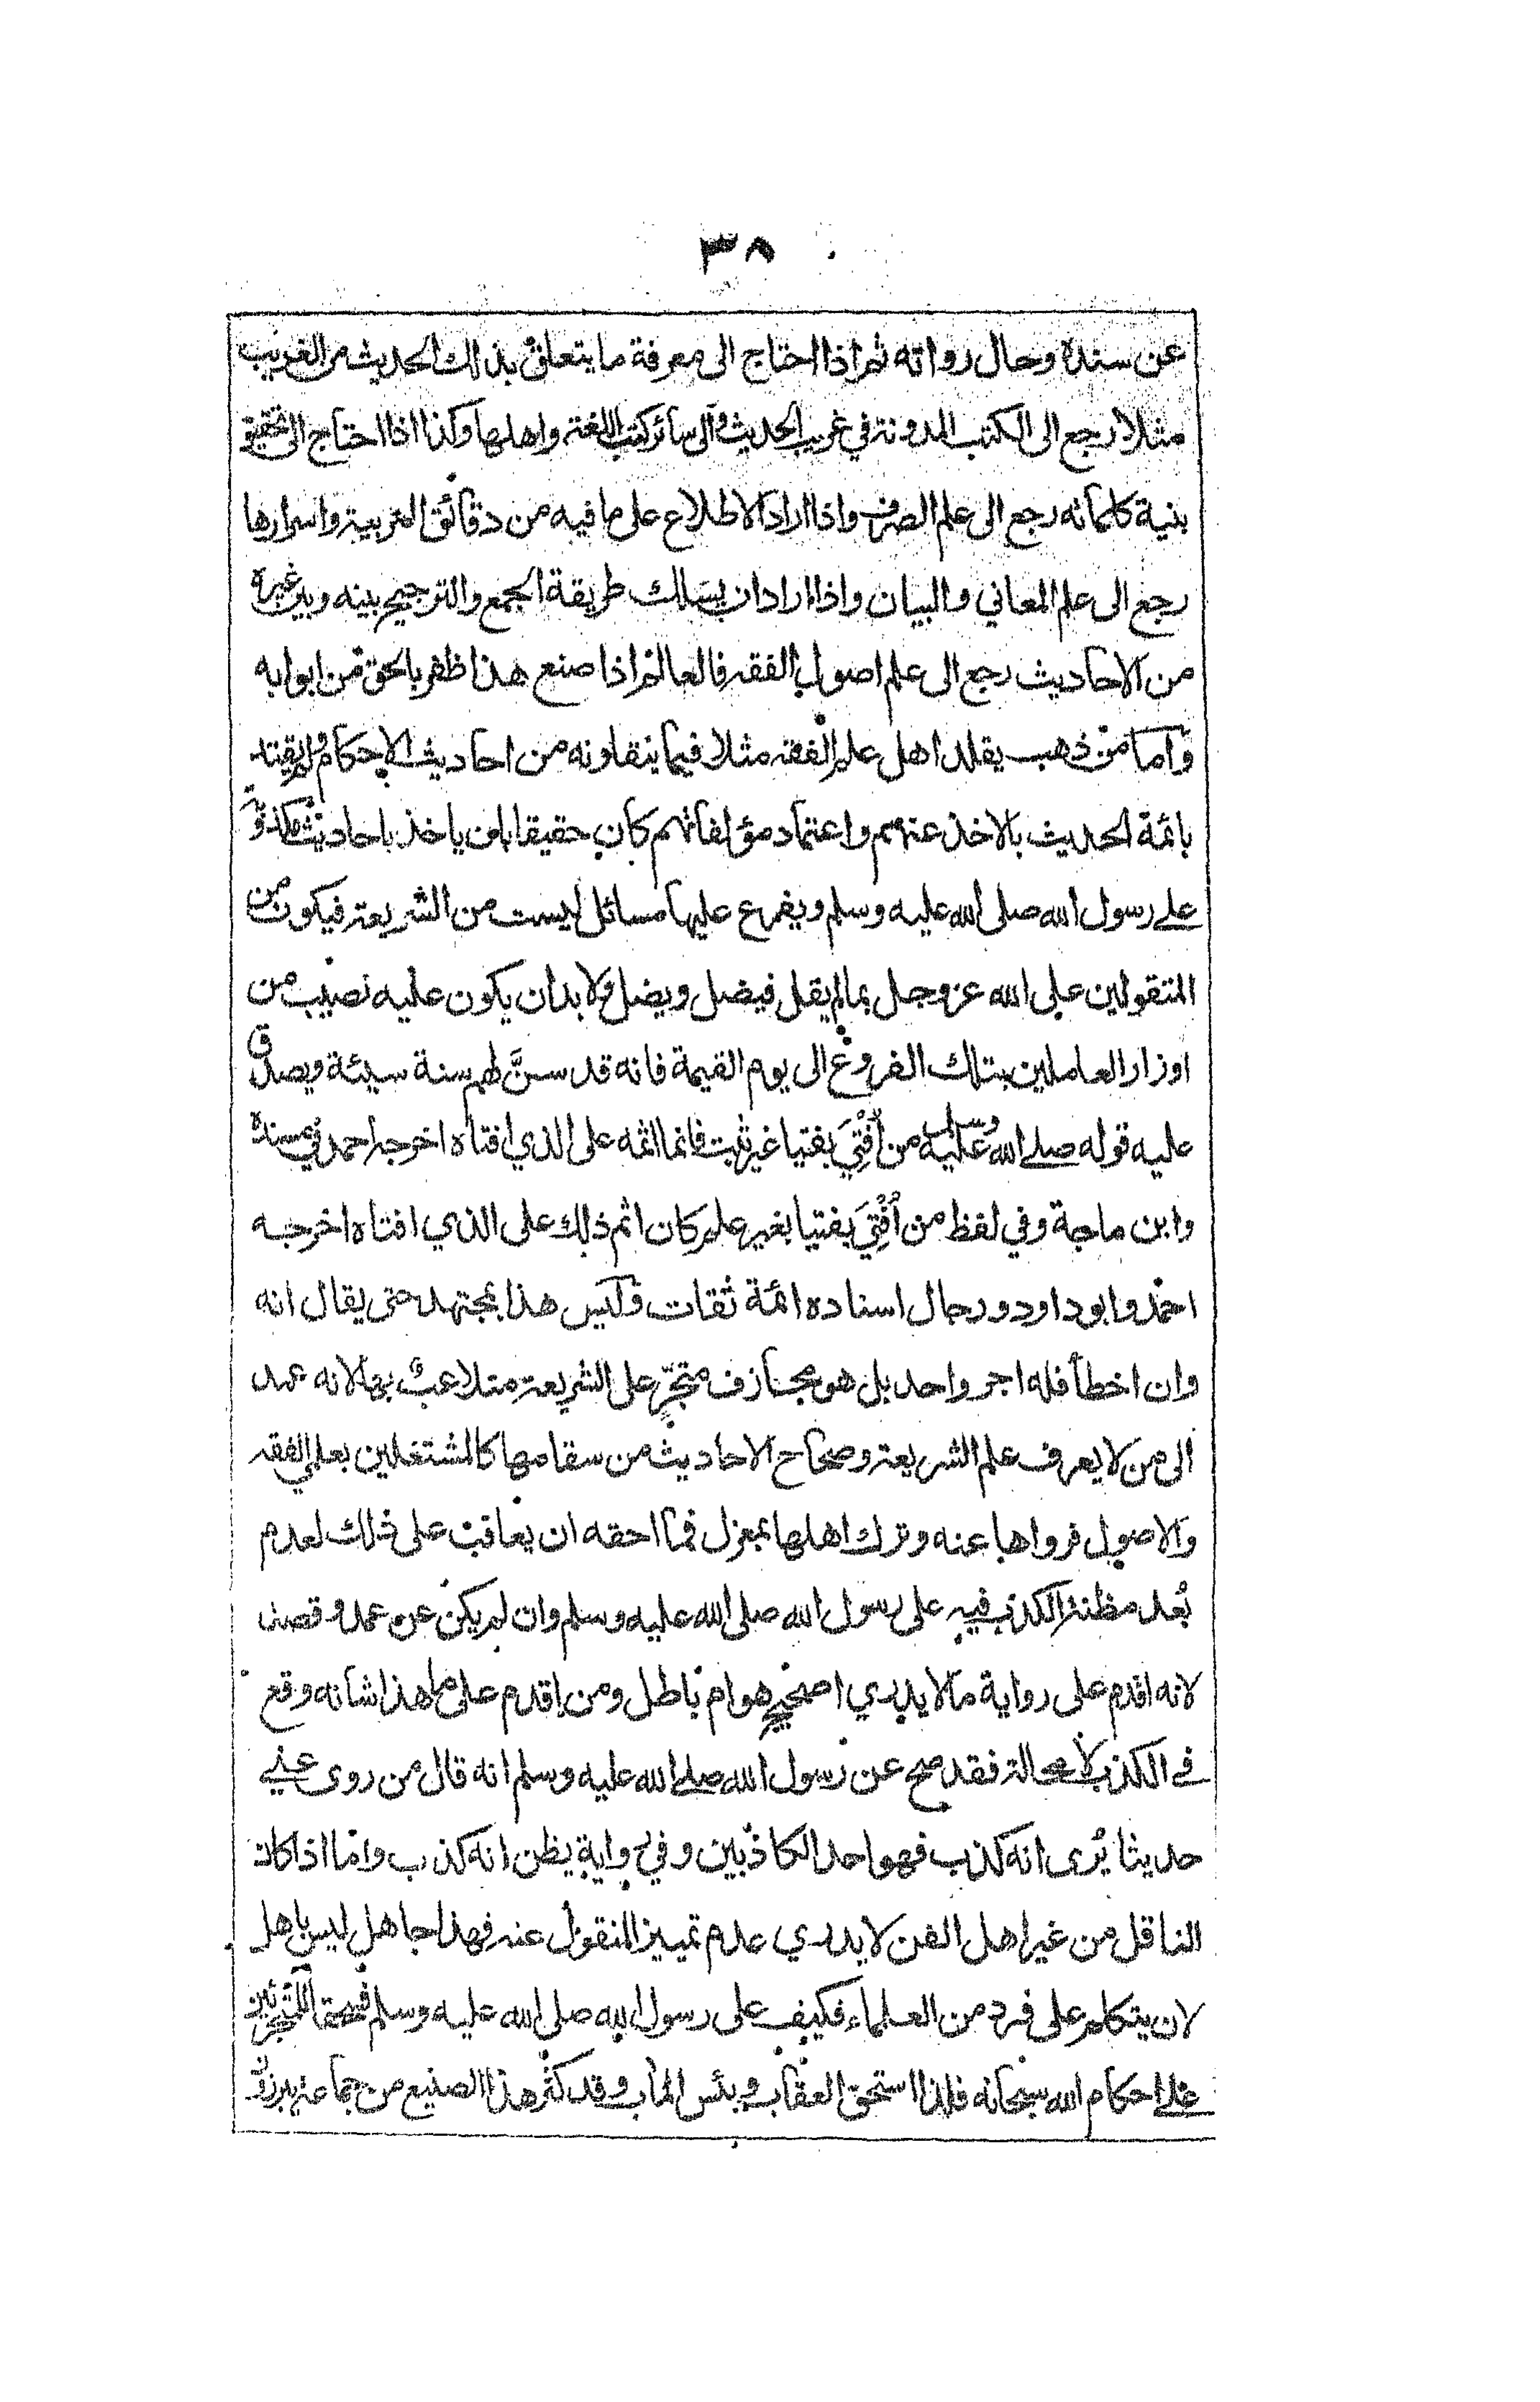 ٣٨
عن سنده وحال رواته ثم اذا احتاج الى معرفة ما يتعلق بذلك الحديث من الغريب
مثلا رجع الى الكتب المدونة في غريب الحديث والى سائر كتب اللغة واهلها وكذا اذا احتاج الى تحقيق
بنية كلماته رجع الى علم الصرف واذا اراد الاطلاع على ما فيه من دقائق العربية واسرارها
رجع الى علم المعاني والبيان واذا اراد ان يسلك طريقة الجمع والترجيح بينه وبين غيره
من الاحاديث رجع الى علم اصول الفقه فالعالم اذا صنع هذا ظفر بالحق من ابوابه
وآما من ذهب يقلد اهل علم الفقه مثلا فيما ينقلونه من احاديث الاحكام ولم يقتد
بائمة الحديث بالاخذ عنهم واعتماد مؤلفاتهم كان حقيقا بان ياخذ باحاديث مكذوبة
على رسول الله صلى الله عليه وسلم ويفرع عليها مسائل ليست من الشريعة فيكون من
المتقولين على الله عز وجل بما لم يقل فيضل ويضل ولا بد ان يكون عليه نصيب من
اوزار العاملين بتلك الفروع الى يوم القيمة فانه قد سنَّ لهم سنة سيئة ويصدق
عليه قوله صلى الله عليه وسلم من اُفْتِيَ بفتيا غير ثبت فانما اثمه على الذي افتاه اخرجه احمد في مسنده
وابن ماجة وفي لفظ من اُفْتِيَ بفتيا بغير علم كان اثم ذلك على الذي افتاه اخرجه
احمد وابو داود ورجال اسناده ائمة ثقات وليس هذا بمجتهد حتى يقال انه
وان اخطأ فله اجر واحد بل هو مجازف متجرّ على الشريعة متلاعب بها لانه عمد
الى من لا يعرف علم الشريعة وصحاح الاحاديث من سقامها كالمشتغلين بعلمي الفقه
والاصول فرواها عنه وترك اهلها بمعزل فما احقه ان يعاقب على ذلك لعدم
بُعد مظنة الكذب فيه على رسول الله صلى الله عليه وسلم وان لم يكن عن عمد وقصد
لانه اقدم على رواية ما لا يدري اصحيح هو ام باطل ومن اقدم على ما هذا شانه وقع
في الكذب لا محالة فقد صح عن رسول الله صلى الله عليه وسلم انه قال من روى عني
حديثا يُرى انه كذب فهو احد الكاذبين وفي رواية يظن انه كذب واما اذا كان
الناقل من غير اهل الفن لا يدري عدم تمييز المنقول عنه فهذا جاهل ليس باهل
لان يتكلم على فرد من العلماء فكيف على رسول الله صلى الله عليه وسلم فسحقا للمتجرئين
على احكام الله سبحانه فلذا استحق العقاب وبئس المآب وقد كثر هذا الصنيع من جماعة